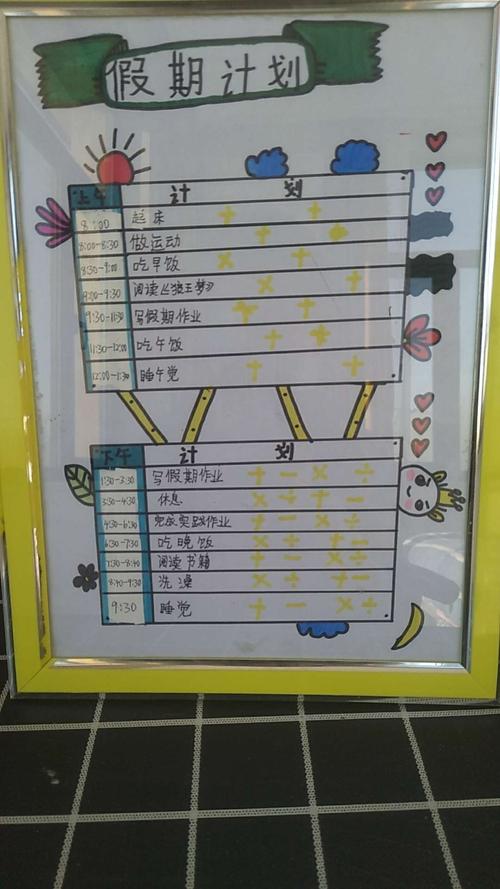 假期计划
上午 计 划
8:00 起床
8:00-8:30 做运动
8:30-9:00 吃早饭
9:00-9:30 阅读《狼王梦》
9:30-11:30 写假期作业
11:30-12:00 吃午饭
12:00-1:30 睡午觉
下午 计 划
1:30-3:30 写假期作业
3:30-4:30 休息
4:30-6:30 完成实践作业
6:30-7:30 吃晚饭
7:30-8:40 阅读书籍
8:40-9:30 洗澡
9:30 睡觉